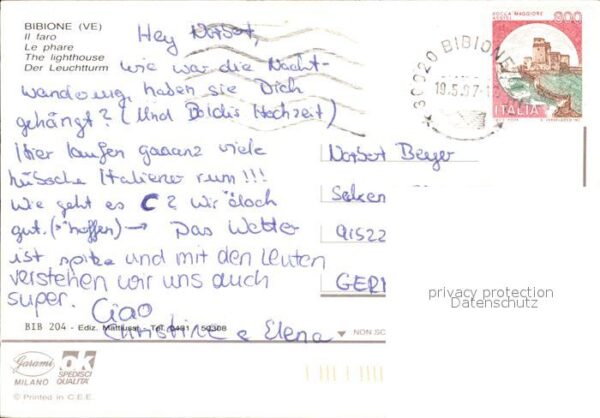 BIBIONE (VE)
Il faro
Le phare
The lighthouse
Der Leuchtturm
Hey Norbert,
wie war die Nacht-
wanderung, haben sie Dich
gehängt? (Und Hochzeit)
Hier laufen gaaanz viele
hübsche Italiener rum!!!
Wie geht es
gut. (hoffen) → Das Wetter
ist spitze und mit den Leuten
verstehen wir uns auch
super.
Ciao
Christine e Elena
BIB 204 - Ediz.
Garami
MILANO
OK
SPEDISCI
QUALITÀ
© Printed in C.E.E.
ROCCA MAGGIORE
ASSISI
300
ITALIA
30020 BIBIONE
19.5.97-12
Norbert Beyer
91522
GER
privacy protection
Datenschutz
NON SC